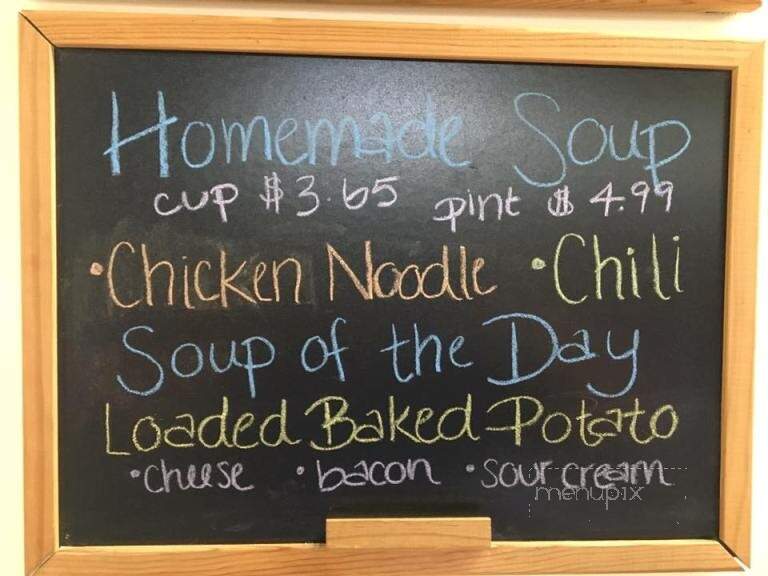 Homemade Soup
cup $3.65 pint $4.99
•Chicken Noodle •Chili
Soup of the Day
Loaded Baked Potato
•cheese •bacon •sour cream
menupix